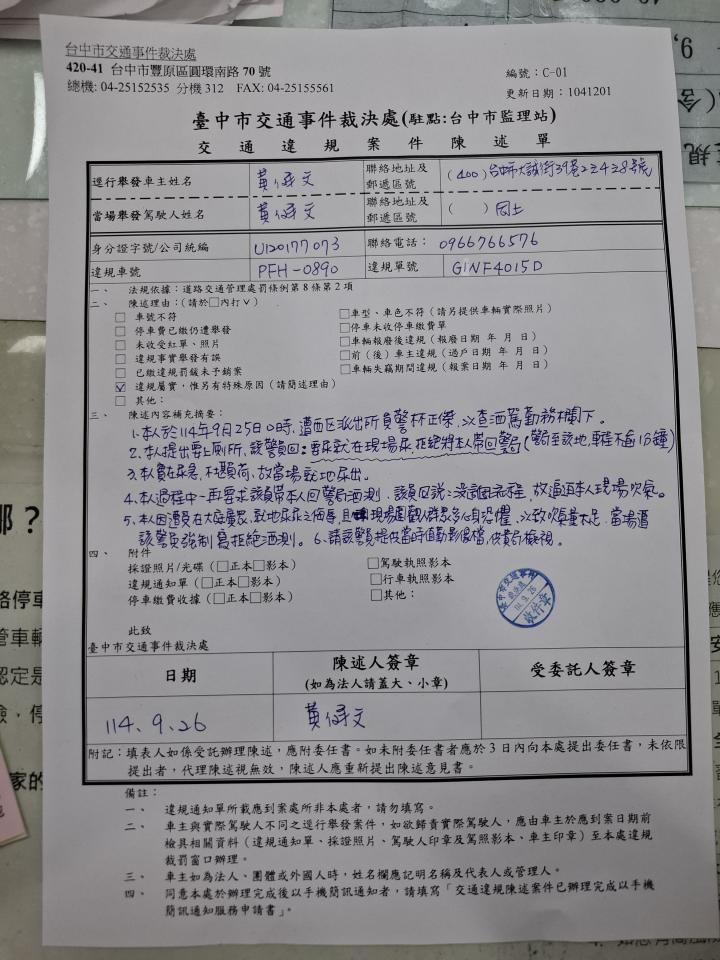 台中市交通事件裁決處
420-41 台中市豐原區圓環南路 70 號
總機: 04-25152535 分機 312 FAX: 04-25155561
編號：C-01
更新日期：1041201
臺中市交通事件裁決處(駐點:台中市監理站)
交通違規案件陳述單
逕行舉發車主姓名
聯絡地址及郵遞區號 (400)
當場舉發駕駛人姓名
聯絡地址及郵遞區號 ( ) 同上
身分證字號/公司統編 U120177073 聯絡電話： 0966766576
違規車號 PFH-0890 違規單號 G1NF4015D
一、 法規依據：道路交通管理處罰條例第 8 條第 2 項
二、 陳述理由：(請於□內打ˇ)
□ 車號不符 □車型、車色不符（請另提供車輛實際照片）
□ 停車費已繳仍遭舉發 □停車未收停車繳費單
□ 未收受紅單、照片 □車輛報廢後違規（報廢日期 年 月 日）
□ 違規事實舉發有誤 □前（後）車主違規（過戶日期 年 月 日）
□ 已繳違規罰鍰未予銷案 □車輛失竊期間違規（報案日期 年 月 日）
☑ 違規屬實，惟另有特殊原因（請簡述理由）
□ 其他：
三、 陳述內容補充摘要：
1.本人於114年9月25日0時，遭西區派出所員警林正傑，以查酒駕勤務欄下。
2.本人提出要上廁所，該警員回：要尿就在現場尿，拒絕將本人帶回警局(警局至該地，車程不逾1分鐘)
3.本人實在尿急，不堪負荷，故當場就地尿出。
4.本人過程中一再要求該員帶本人回警局酒測，該員回說：沒這個流程，故逼迫本人現場吹氣。
5.本人因遭員在大庭廣眾，就地尿尿之侮辱，且現場圍觀人群眾多心生恐懼，以致吹氣量不足，當場遭
該警員強制寫拒絕酒測。6.請該警員提供當時值勤影像檔，供貴局檢視。
四、 附件
採證照片/光碟（□正本□影本） □駕駛執照影本
違規通知單（□正本□影本） □行車執照影本
停車繳費收據（□正本□影本） □其他：
此致
臺中市交通事件裁決處
日期 陳述人簽章 受委託人簽章
(如為法人請蓋大、小章)
114.9.26
附記：填表人如係受託辦理陳述，應附委任書。如未附委任書者應於 3 日內向本處提出委任書，未依限
提出者，代理陳述視無效，陳述人應重新提出陳述意見書。
備註：
一、 違規通知單所載應到案處所非本處者，請勿填寫。
二、 車主與實際駕駛人不同之逕行舉發案件，如欲歸責實際駕駛人，應由車主於應到案日期前
檢具相關資料（違規通知單、採證照片、駕駛人印章及駕照影本、車主印章）至本處違規
裁罰窗口辦理。
三、 車主如為法人、團體或外國人時，姓名欄應記明名稱及代表人或管理人。
四、 同意本處於辦理完成後以手機簡訊通知者，請填寫「交通違規陳述案件已辦理完成以手機
簡訊通知服務申請書」。